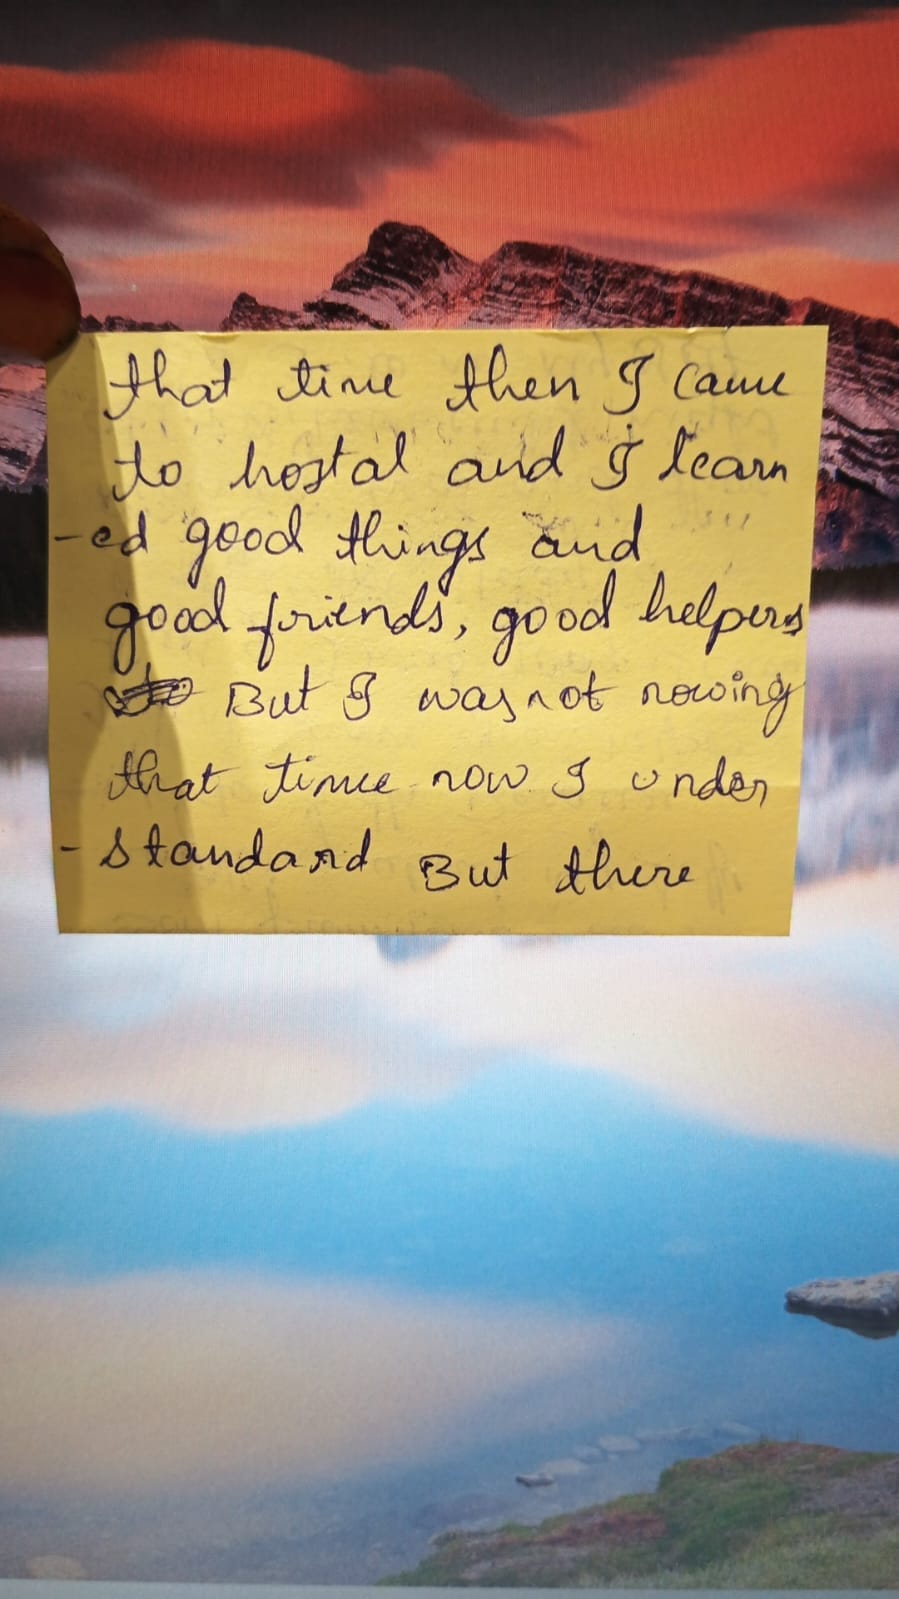 that time then I came
to hostal and I learn
-ed good things and
good friends, good helpers
But I was not nowing
that time now I under
-standard But there